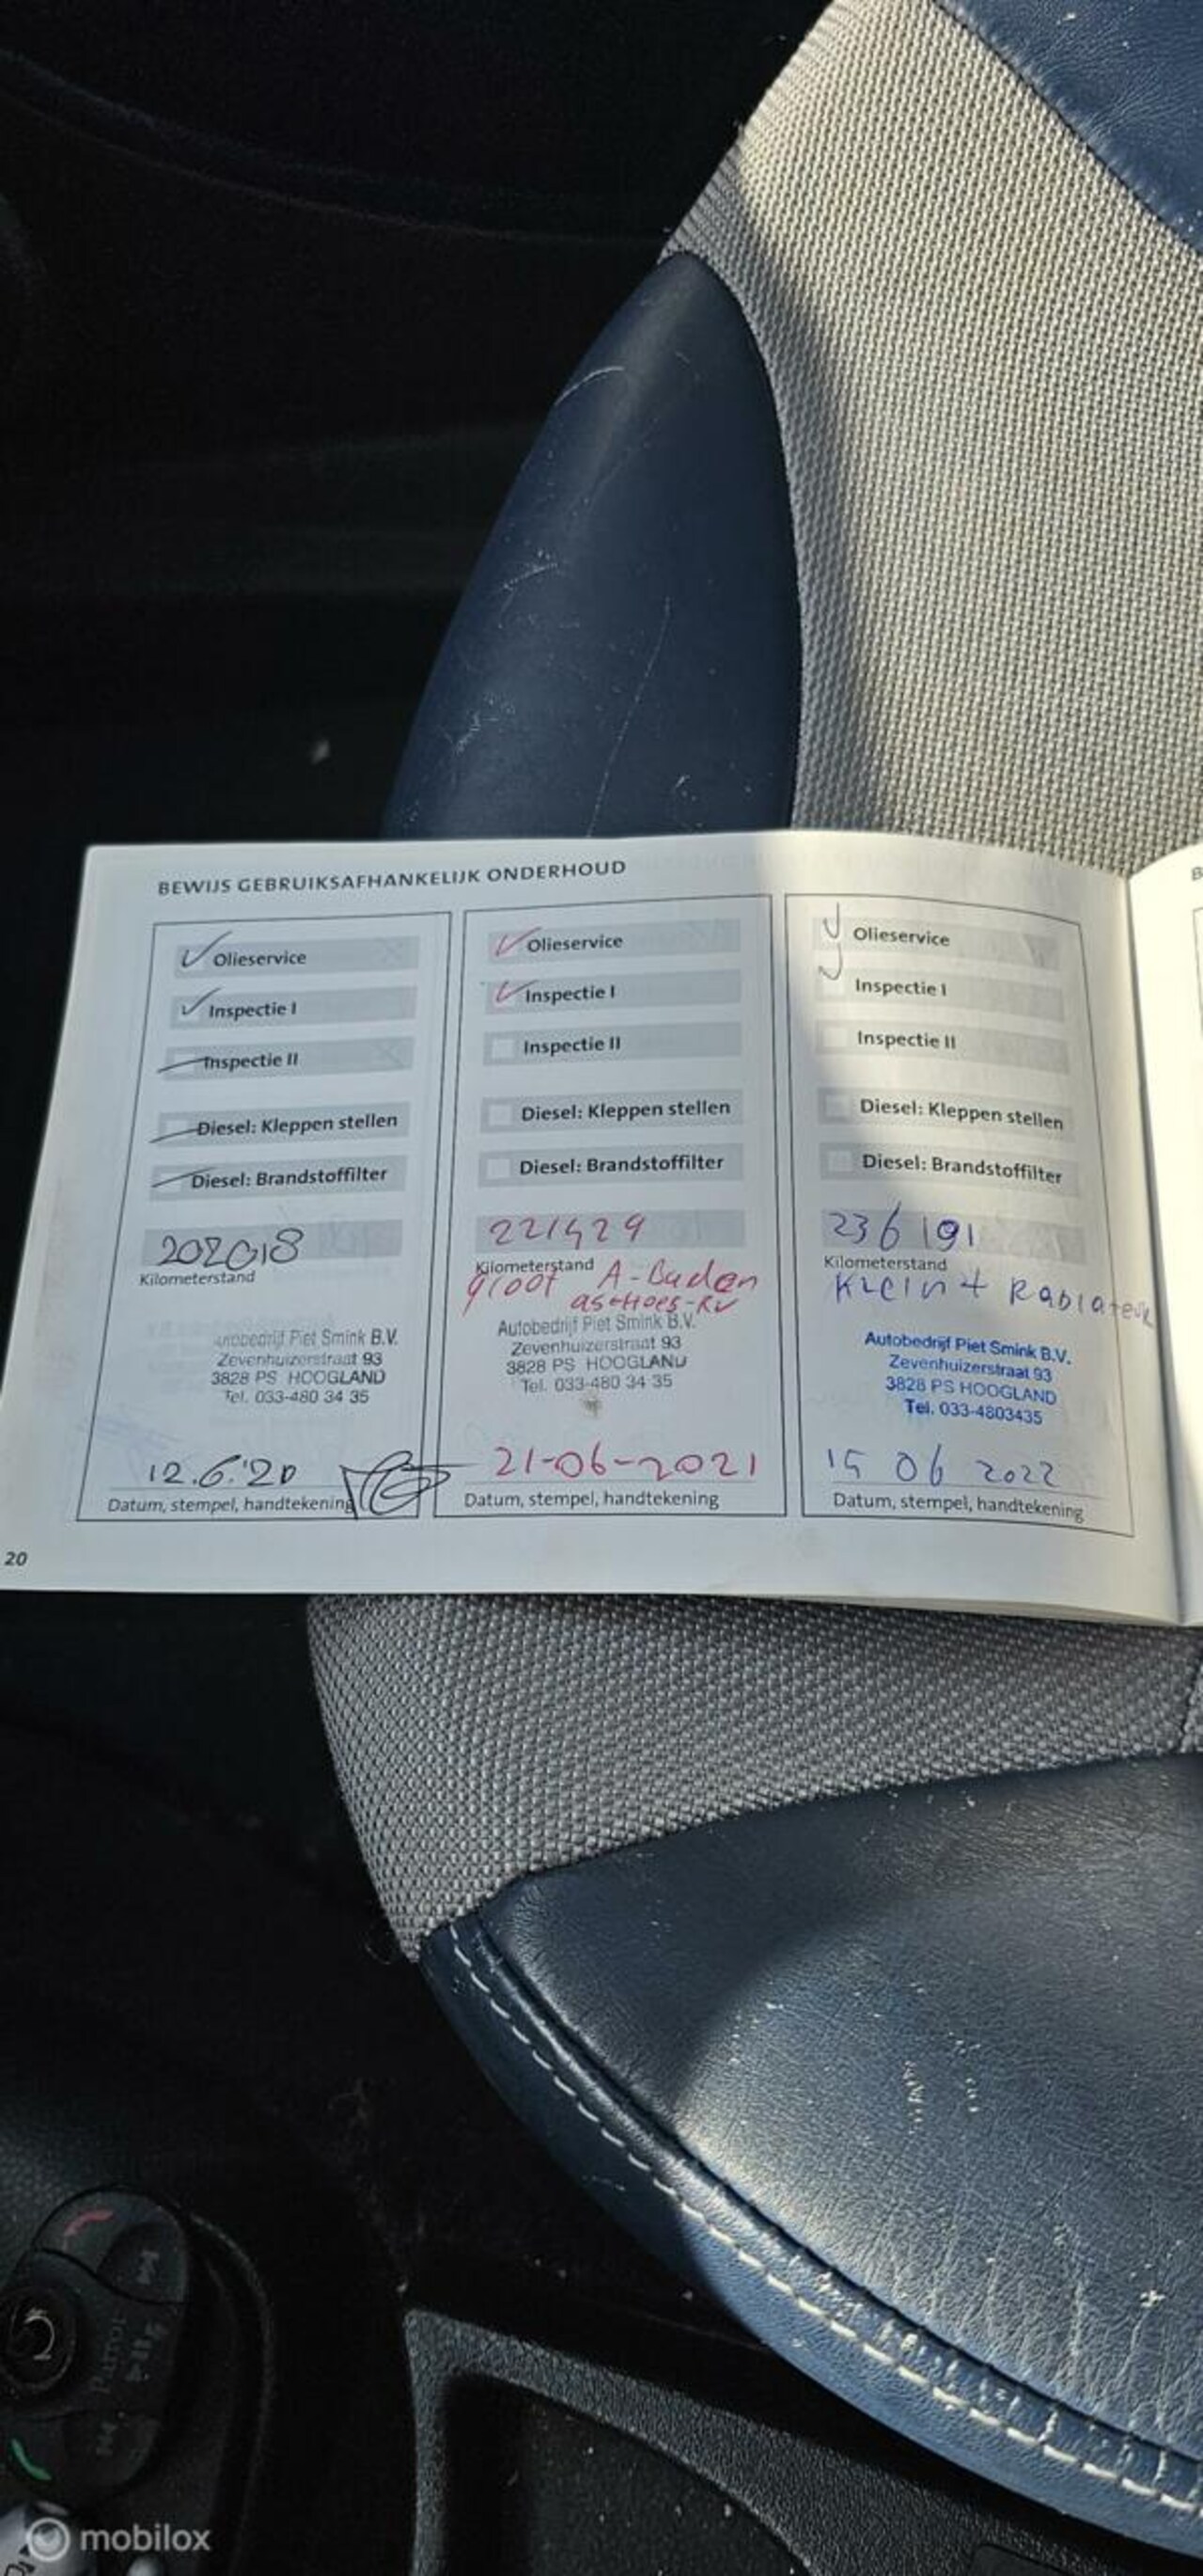 BEWIJS GEBRUIKSAFHANKELIJK ONDERHOUD
Olieservice
Inspectie I
Inspectie II
Diesel: Kleppen stellen
Diesel: Brandstoffilter
202018
Kilometerstand
Autobedrijf Piet Smink B.V.
Zevenhuizerstraat 93
3828 PS HOOGLAND
Tel. 033-480 34 35
12.6.'20
Datum, stempel, handtekening
Olieservice
Inspectie I
Inspectie II
Diesel: Kleppen stellen
Diesel: Brandstoffilter
221429
Kilometerstand
groot A-Banden
as-Hoes-RV
Autobedrijf Piet Smink B.V.
Zevenhuizerstraat 93
3828 PS HOOGLAND
Tel. 033-480 34 35
21-06-2021
Datum, stempel, handtekening
Olieservice
Inspectie I
Inspectie II
Diesel: Kleppen stellen
Diesel: Brandstoffilter
236191
Kilometerstand
Klein + Radiateur
Autobedrijf Piet Smink B.V.
Zevenhuizerstraat 93
3828 PS HOOGLAND
Tel. 033-4803435
15 06 2022
Datum, stempel, handtekening
20
mobilox